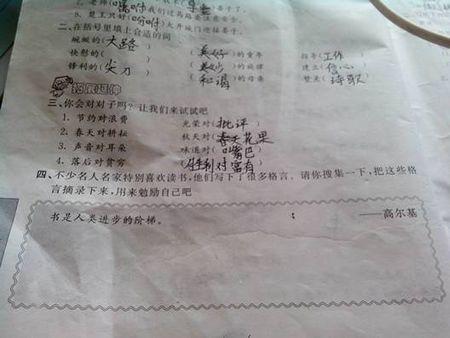 5. 楚王只好(吩咐)大开城门迎接晏子。
二、在括号里填上合适的词
蜿蜒的(大路) (美好)的童年 指导(工作)
快愁的( (美妙)的旋律 建立(信心)
锋利的(尖刀) (和谐)的 赞美(诗歌)
拓展延伸
三、你会对对子吗?让我们来试试吧
1. 节约对浪费 光荣对(批评
2. 春天对耕耘 秋天对(花果
3. 声音对耳朵 味道对(嘴巴
4. 落后对贫穷 对富有
四、不少名人名家特别喜欢读书,他们写下了很多格言。请你搜集一下,把这些格
言摘录下来,用来勉励自己吧
书是人类进步的阶梯。 ——高尔基